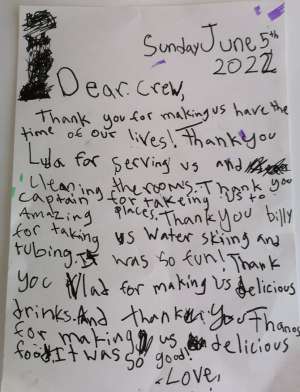 Sunday June 5th
2022
Dear Crew,
Thank you for making us have the
time of our lives! Thank you
Lula for serving us and
Cleaning the rooms. Thank you
captain for takeing us to
Amazing places. Thank you billy
for taking us water skiing and
tubing. It was so fun! Thank
you Vlad for making us delicious
drinks. And thank you Thanos
for making us delicious
food It was so good!
Love,